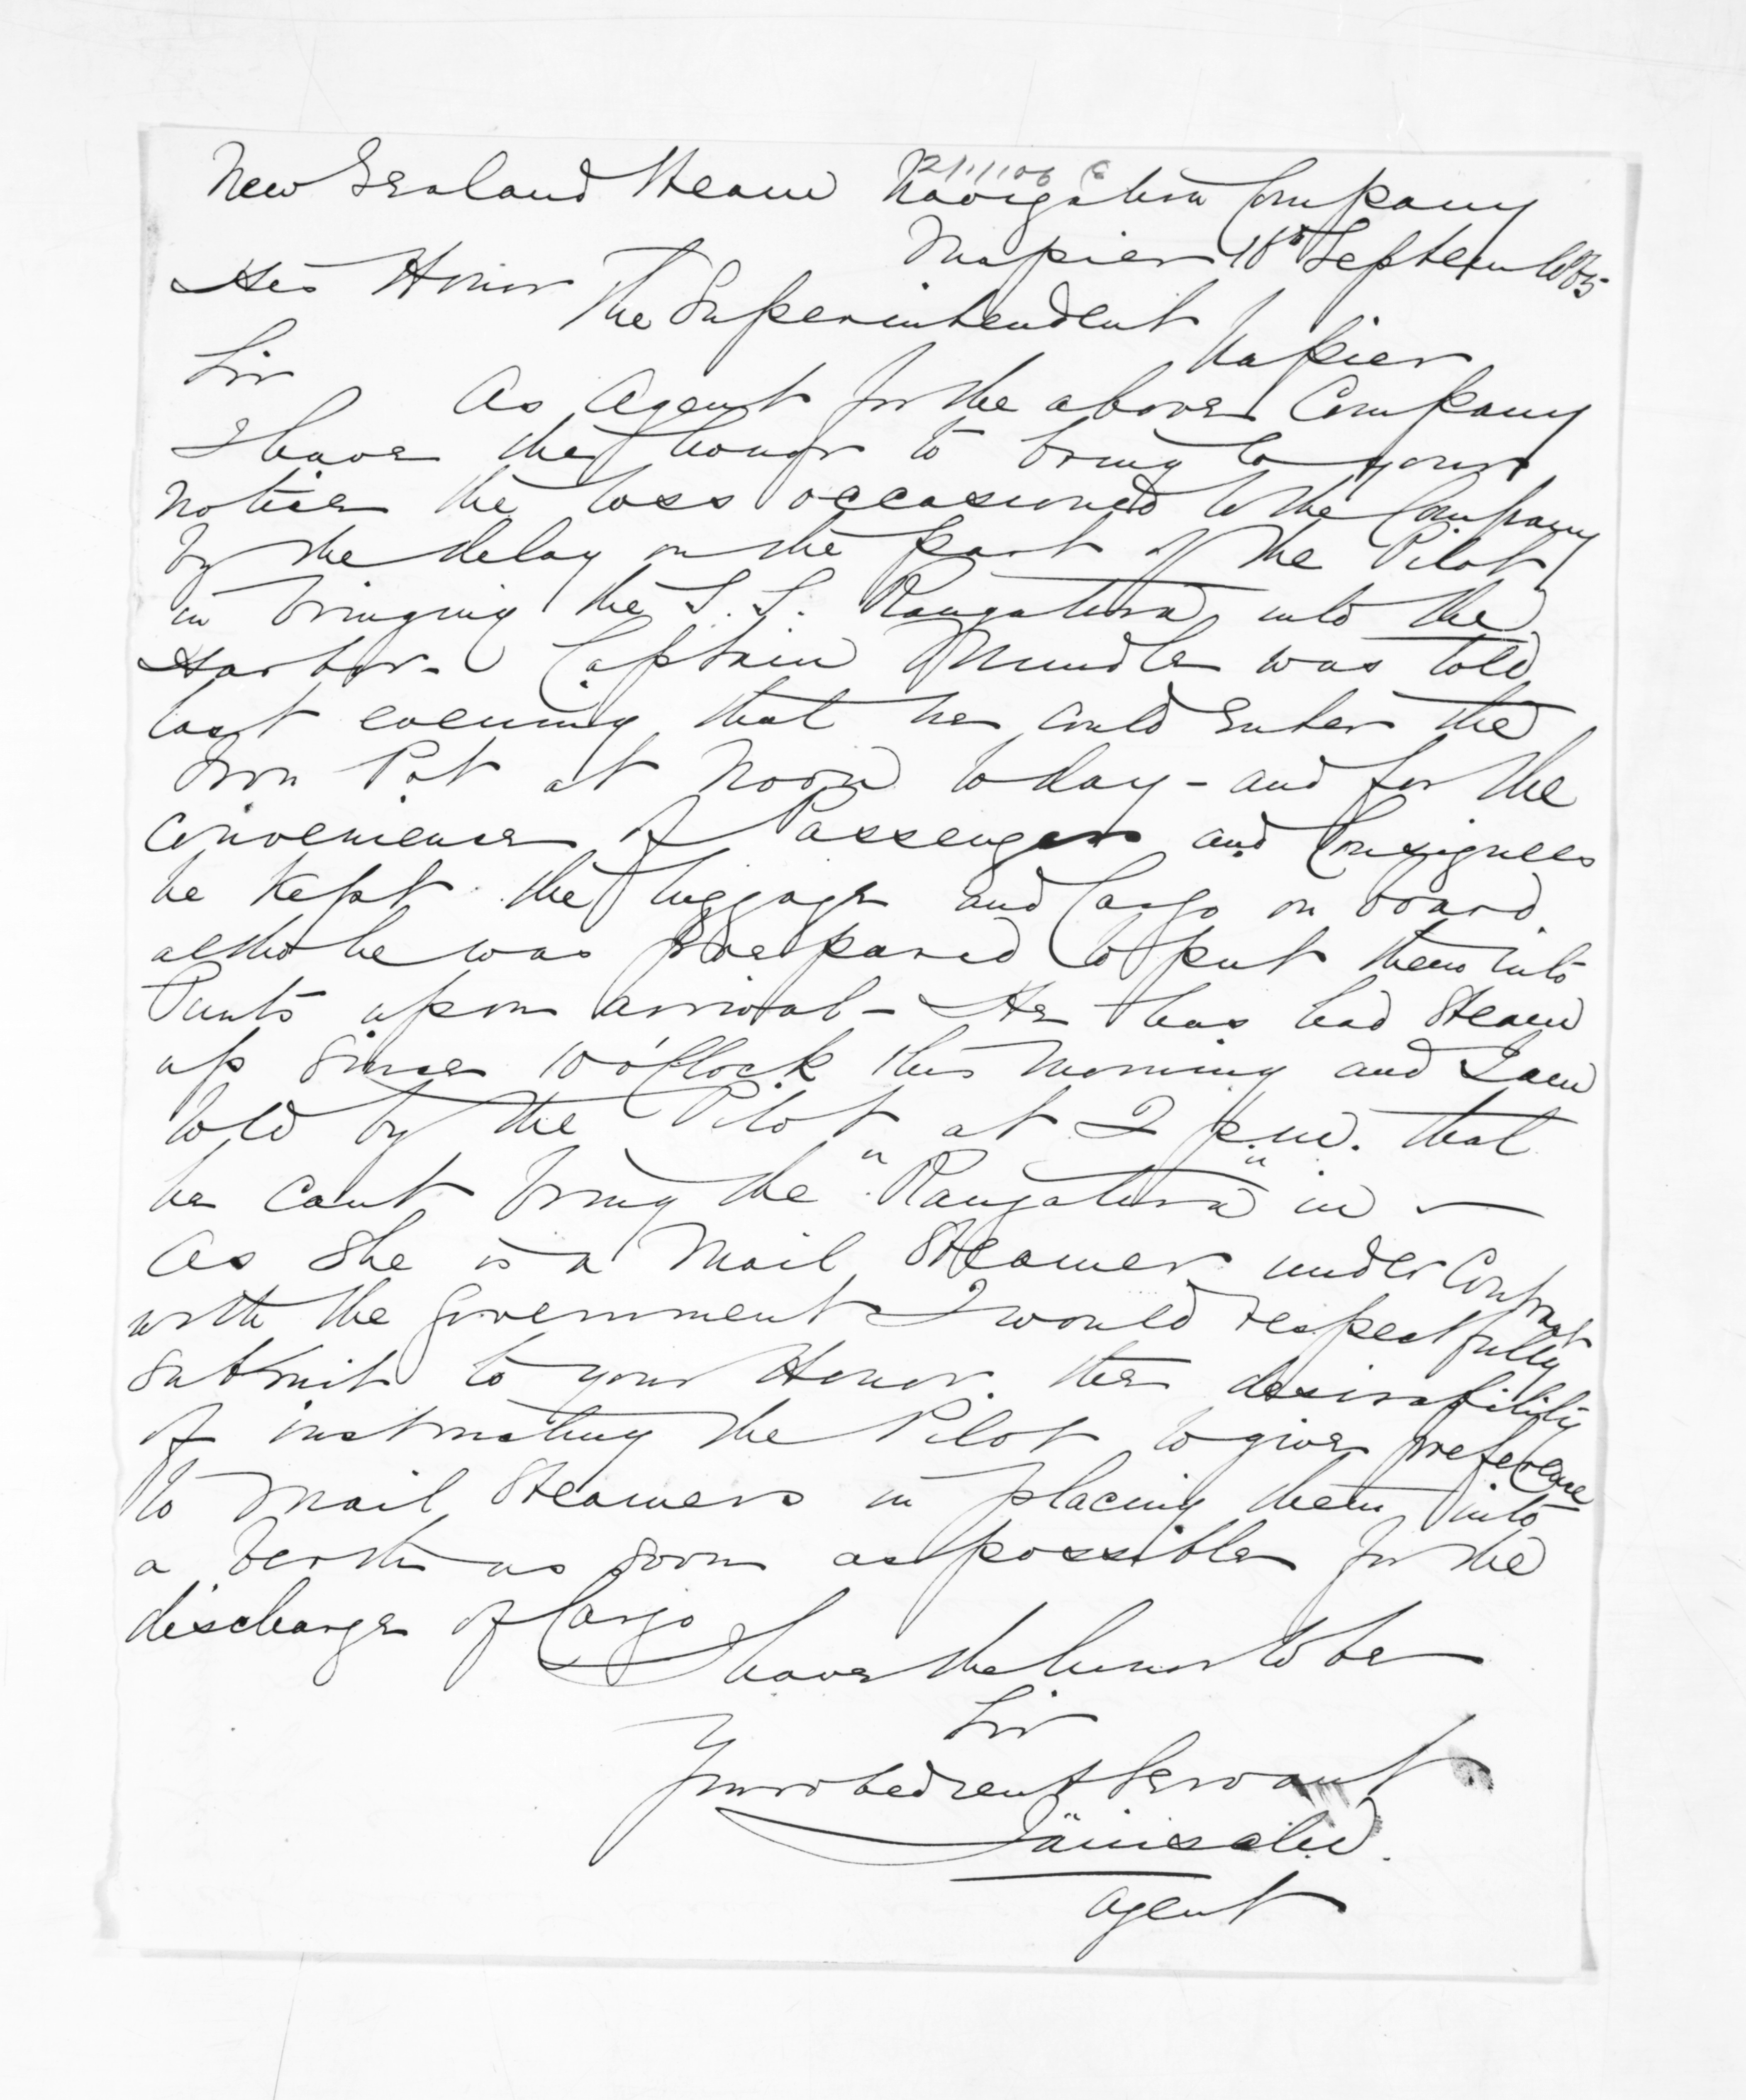 New Zealand Steam Navigation Company
Napier 18th Septem 1865
His Honor
The Superintendent
Napier
Sir
As Agent for the above Company
I have the honor to bring to your
notice the loss occasioned to the Company
by the delay on the part of the Pilot
in bringing the S.S. Rangatira into the
Harbor - Captain Mundle was told
last evening that he could enter the
Iron Pot at Noon today - and for the
convenience of Passengers and Consignees
he kept the luggage and Cargo on board
altho he was prepared to put them into
Punts upon arrival - He has had steam
up since 10 o'Clock this morning and I am
told by the Pilot at 2 p.m. that
he cant bring the "Rangatira" in -
As she is a Mail Steamer under Contract
with the Government I would respectfully
submit to your Honor the desirability
of instructing the Pilot to give preference
to Mail Steamers in placing them into
a berth as soon as possible for the
discharge of Cargo
I have the honor to be
Sir
Your obedient Servant
Agent